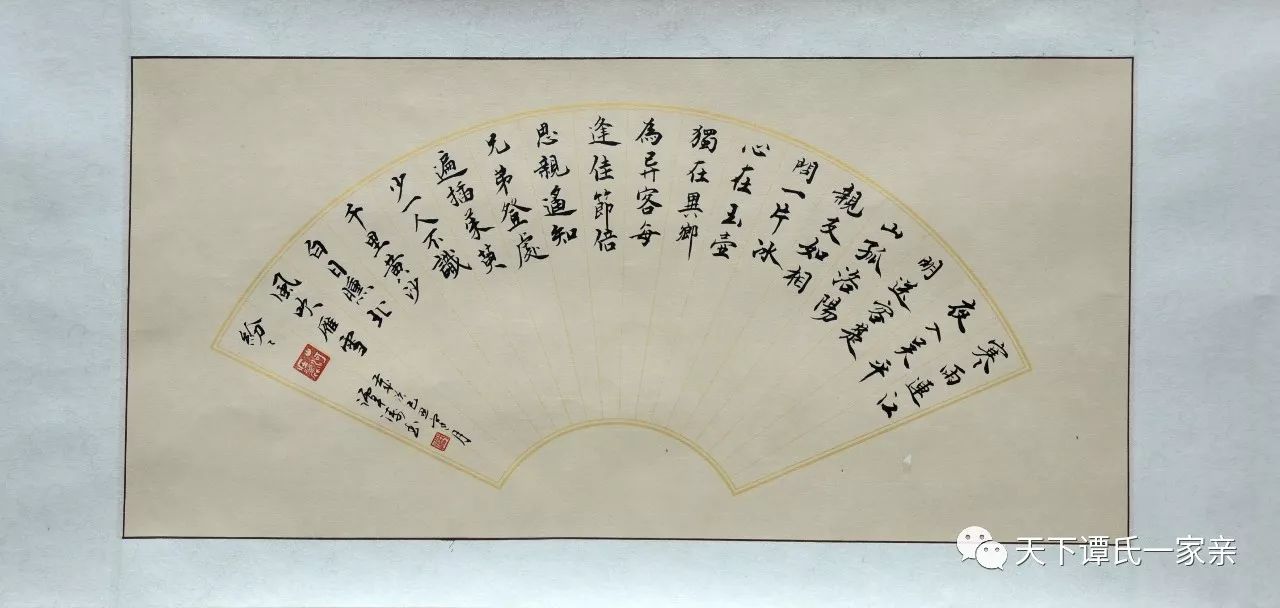 寒雨連江
夜入吴平
明送客楚
山孤洛陽
親友如相
問一片冰
心在玉壺
獨在異鄉
為异客每
逢佳節倍
思親遙知
兄弟登處
遍插茱萸
少一人不識
千里黄沙
白日曛北
風吹雁雪
紛〻
己丑 月
天下谭氏一家亲